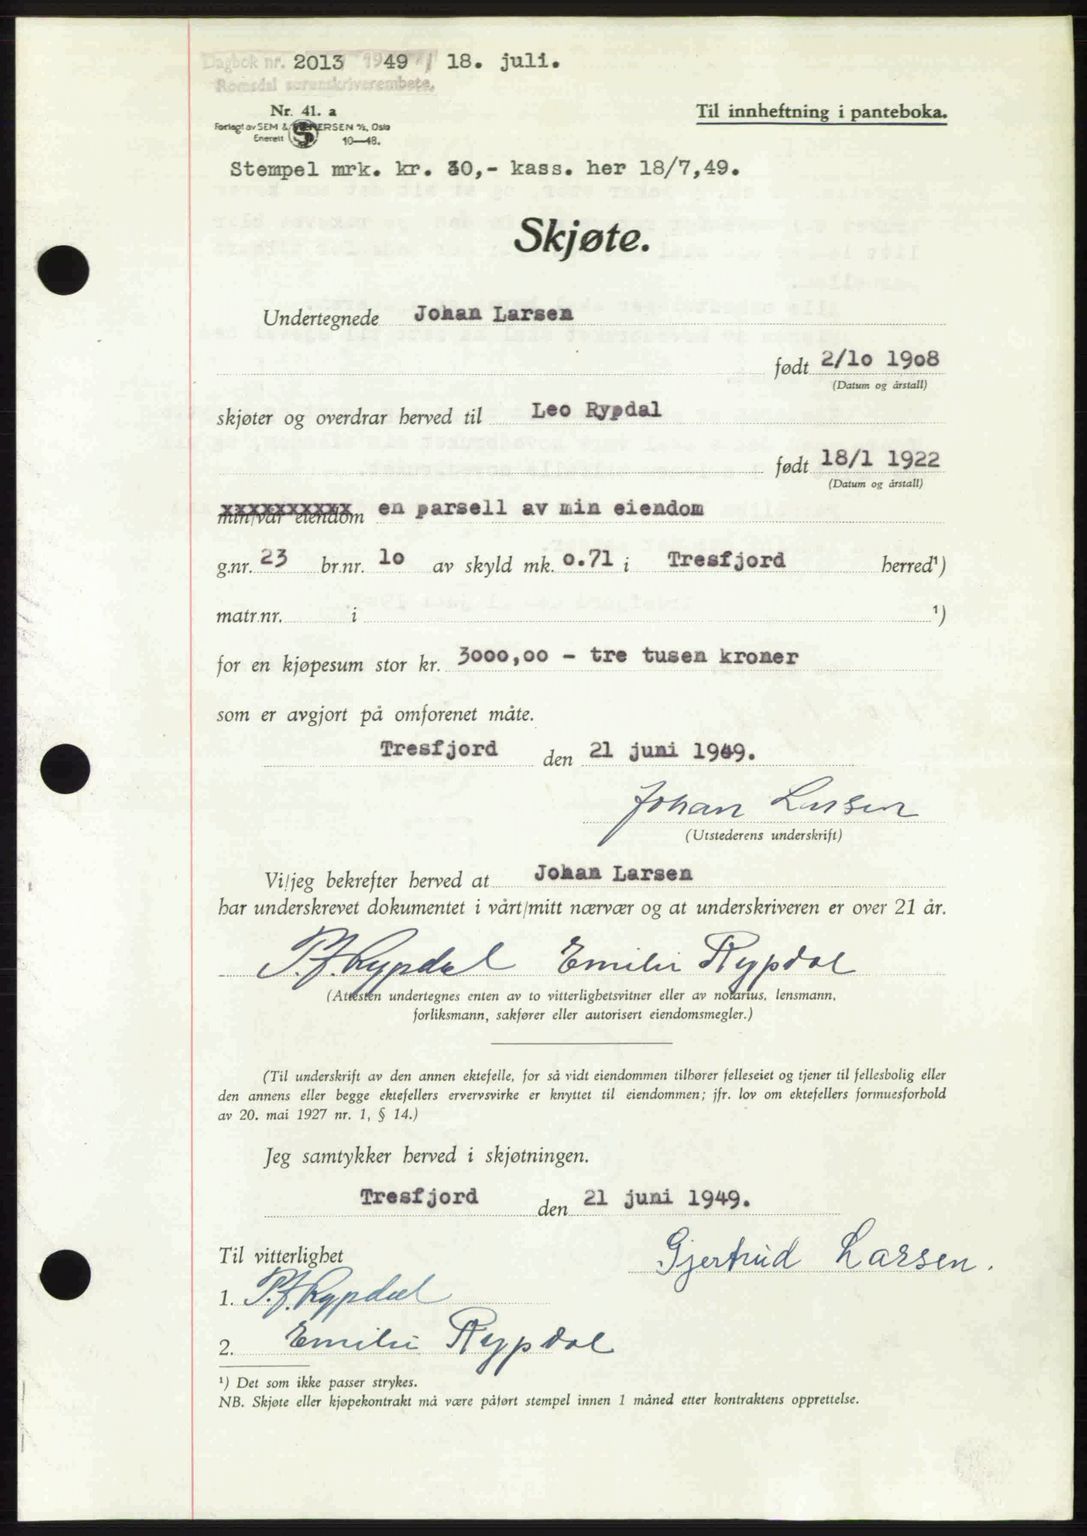 Dagbok nr. 2013 1949 / 18. juli.
Romsdal sorenskriverembete.
Nr. 41. a
Til innheftning i panteboka.
Forlagt av SEM & STENERSEN A/S, Oslo
Enerett 10—48.
Stempel mrk. kr. 30,- kass. her 18/7,49.
Skjøte.
Undertegnede Johan Larsen
født 2/10 1908
(Datum og årstall)
skjøter og overdrar herved til Leo Rypdal
født 18/1 1922
(Datum og årstall)
min/vår eiendom en parsell av min eiendom
g.nr. 23 br.nr. 10 av skyld mk. 0.71 i Tresfjord herred¹)
matr.nr. i ¹)
for en kjøpesum stor kr. 3000,00 - tre tusen kroner
som er avgjort på omforenet måte.
Tresfjord den 21 juni 1949.
Johan Larsen
(Utstederens underskrift)
Vi/jeg bekrefter herved at Johan Larsen
har underskrevet dokumentet i vårt/mitt nærvær og at underskriveren er over 21 år.
P.f. Rypdal Emilie Rypdal
(Attesten undertegnes enten av to vitterlighetsvitner eller av notarius, lensmann,
forliksmann, sakfører eller autorisert eiendomsmegler.)
(Til underskrift av den annen ektefelle, for så vidt eiendommen tilhører felleseiet og tjener til fellesbolig eller
den annens eller begge ektefellers ervervsvirke er knyttet til eiendommen; jfr. lov om ektefellers formuesforhold
av 20. mai 1927 nr. 1, § 14.)
Jeg samtykker herved i skjøtningen.
Tresfjord den 21 juni 1949.
Til vitterlighet Gjertrud Larsen.
1. P.f. Rypdal
2. Emilie Rypdal
¹) Det som ikke passer strykes.
NB. Skjøte eller kjøpekontrakt må være påført stempel innen 1 måned etter kontraktens opprettelse.